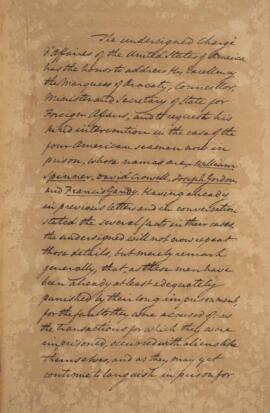 The undersigned Chargé
d'Afaires of the United States of America
has the honor to address His Excellency
the Marquess of Aracaty, Counsellor,
Minister and Secretary of State for
Foreign Afairs, and to request his
kind intervention in the case of the
four American seamen now in
prison, whose names are, William
Spinner, David Crowell, Joseph Gordon
and Francis Gandy. Having already
in previous letters and in conversation
stated the several facts in their cases,
the undersigned will not now repeat
those details, but merely remark
generally, that, as these men have
been already at least adequately
punished by their long imprisonment
for the faults they were accused of; as
the transactions for which they were
imprisoned, occurred with aliens like
themselves, and as they may yet
continue to languish in prison for